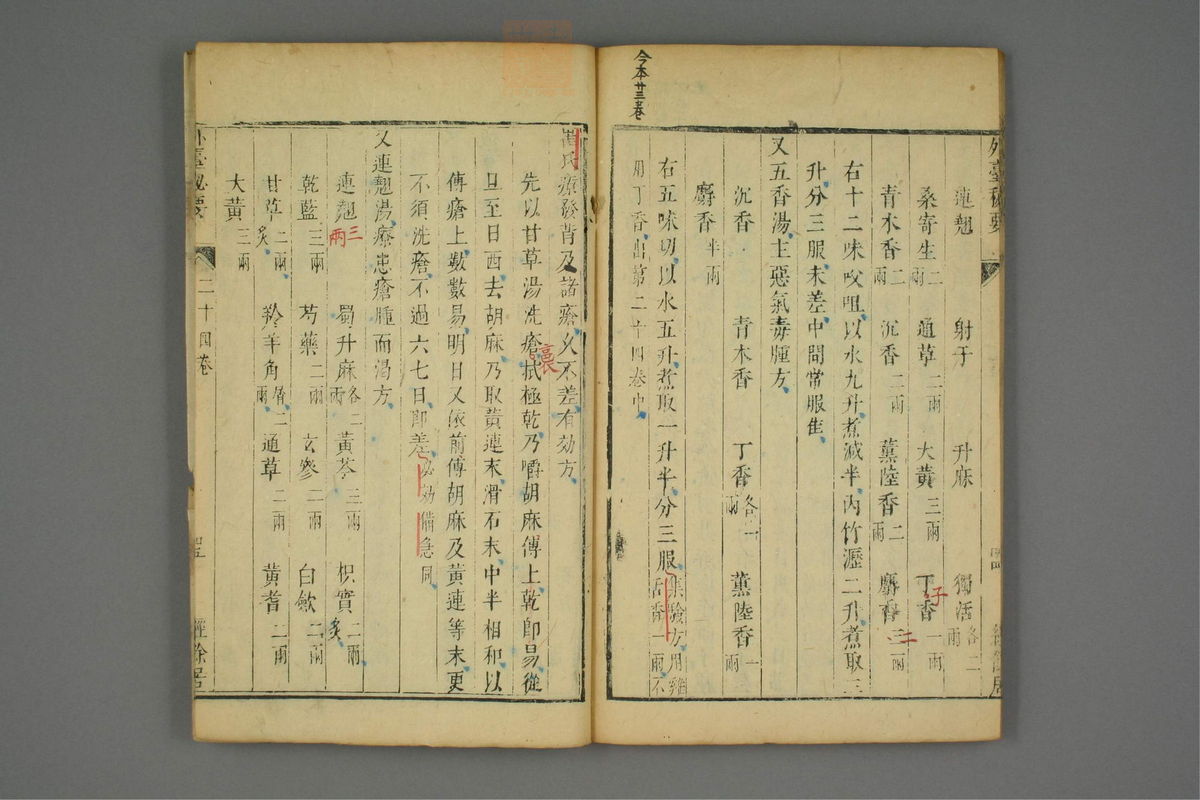 今本廿三卷
外臺秘要
連翹 射干 升麻 獨活各二兩
桑寄生二兩 通草二兩 大黃三兩 丁香一兩
子
青木香二兩 沉香二兩 薰陸香二兩 麝香三兩
二
右十二味㕮咀以水九升煮減半內竹瀝二升煮取三
升分三服未差中間常服佳
又五香湯主惡氣毒腫方
沉香 青木香 丁香各一兩 薰陸香一兩
麝香半兩
右五味切以水五升煮取一升半分三服集驗方用雞舌香一兩不
用丁香出第二十四卷中
崔氏療發背及諸瘡久不差有効方
裹
先以甘草湯洗瘡拭極乾乃嚼胡麻傅上乾即易從
旦至日西去胡麻乃取黃連末滑石末中半相和以
傅瘡上數數易明日又依前傅胡麻及黃連等末更
不須洗瘡不過六七日即差必効備急同
又連翹湯療患瘡腫而渴方
連翹三兩 蜀升麻各二兩 黃芩三兩 枳實二兩炙
乾藍三兩 芍藥二兩 玄參二兩 白歛二兩
甘草二兩炙 羚羊角屑二兩 通草二兩 黃耆二兩
大黃三兩
外臺秘要 二十四卷 經餘居